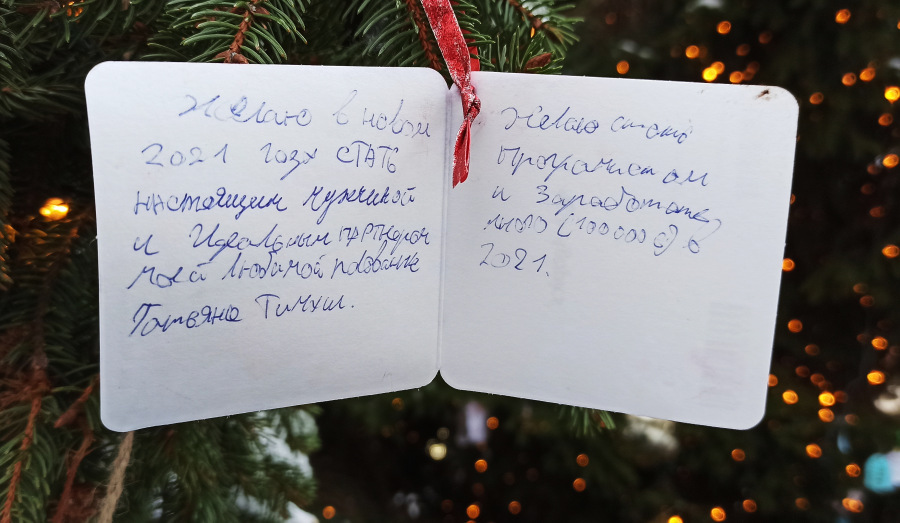 Желаю в новом
2021 году СТАТЬ
настоящим мужчиной
и Идеальным партнером
моей любимой
Татьяне
Желаю стать
програмистом
и Заработать
много (100000 €) в
2021.